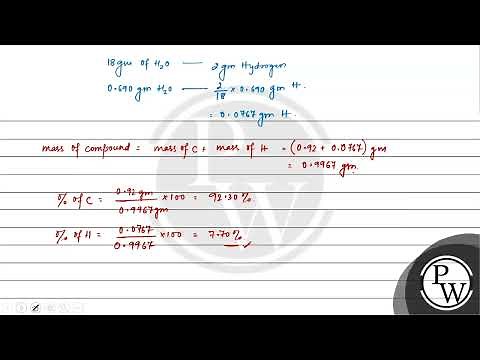 18 gm of H₂O —— 2 gm Hydrogen
0.690 gm H₂O —— 2/18 × 0.690 gm H.
= 0.0767 gm H.
mass of compound = mass of C + mass of H = (0.92 + 0.0767) gm
= 0.9967 gm.
% of C = 0.92 gm/0.9967 gm × 100 = 92.30 %
% of H = 0.0767/0.9967 × 100 = 7.70 %
PW
PW